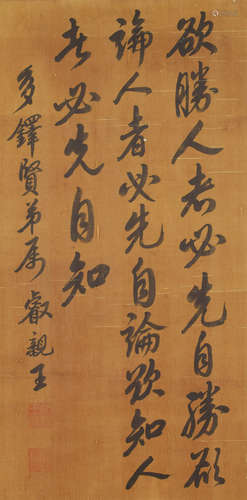 欲勝人者必先自勝欲
論人者必先自論欲知人
者必先自知
多鐸賢弟屬 叡親王